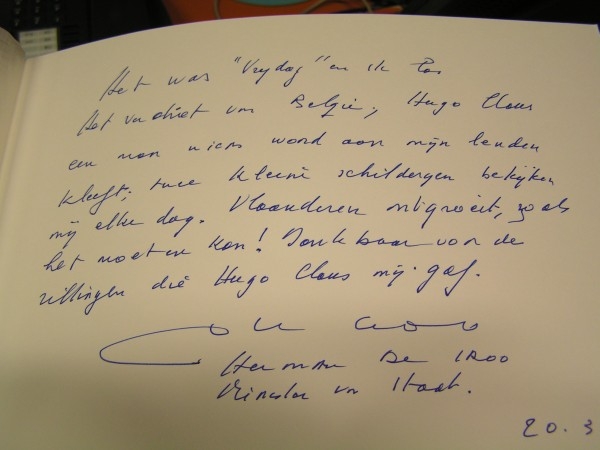 Het was "Vrydag" en ik las
Het verdriet van België, Hugo Claus
een man wiens woord aan mijn lenden
kleeft; twee kleine schilderyen bekijken
mij elke dag. Vlaanderen ontgroeit, zoals
het moet en kan! Dankbaar voor de
rillingen die Hugo Claus mij gaf.
Herman De Croo
Minister van Staat.
20.3